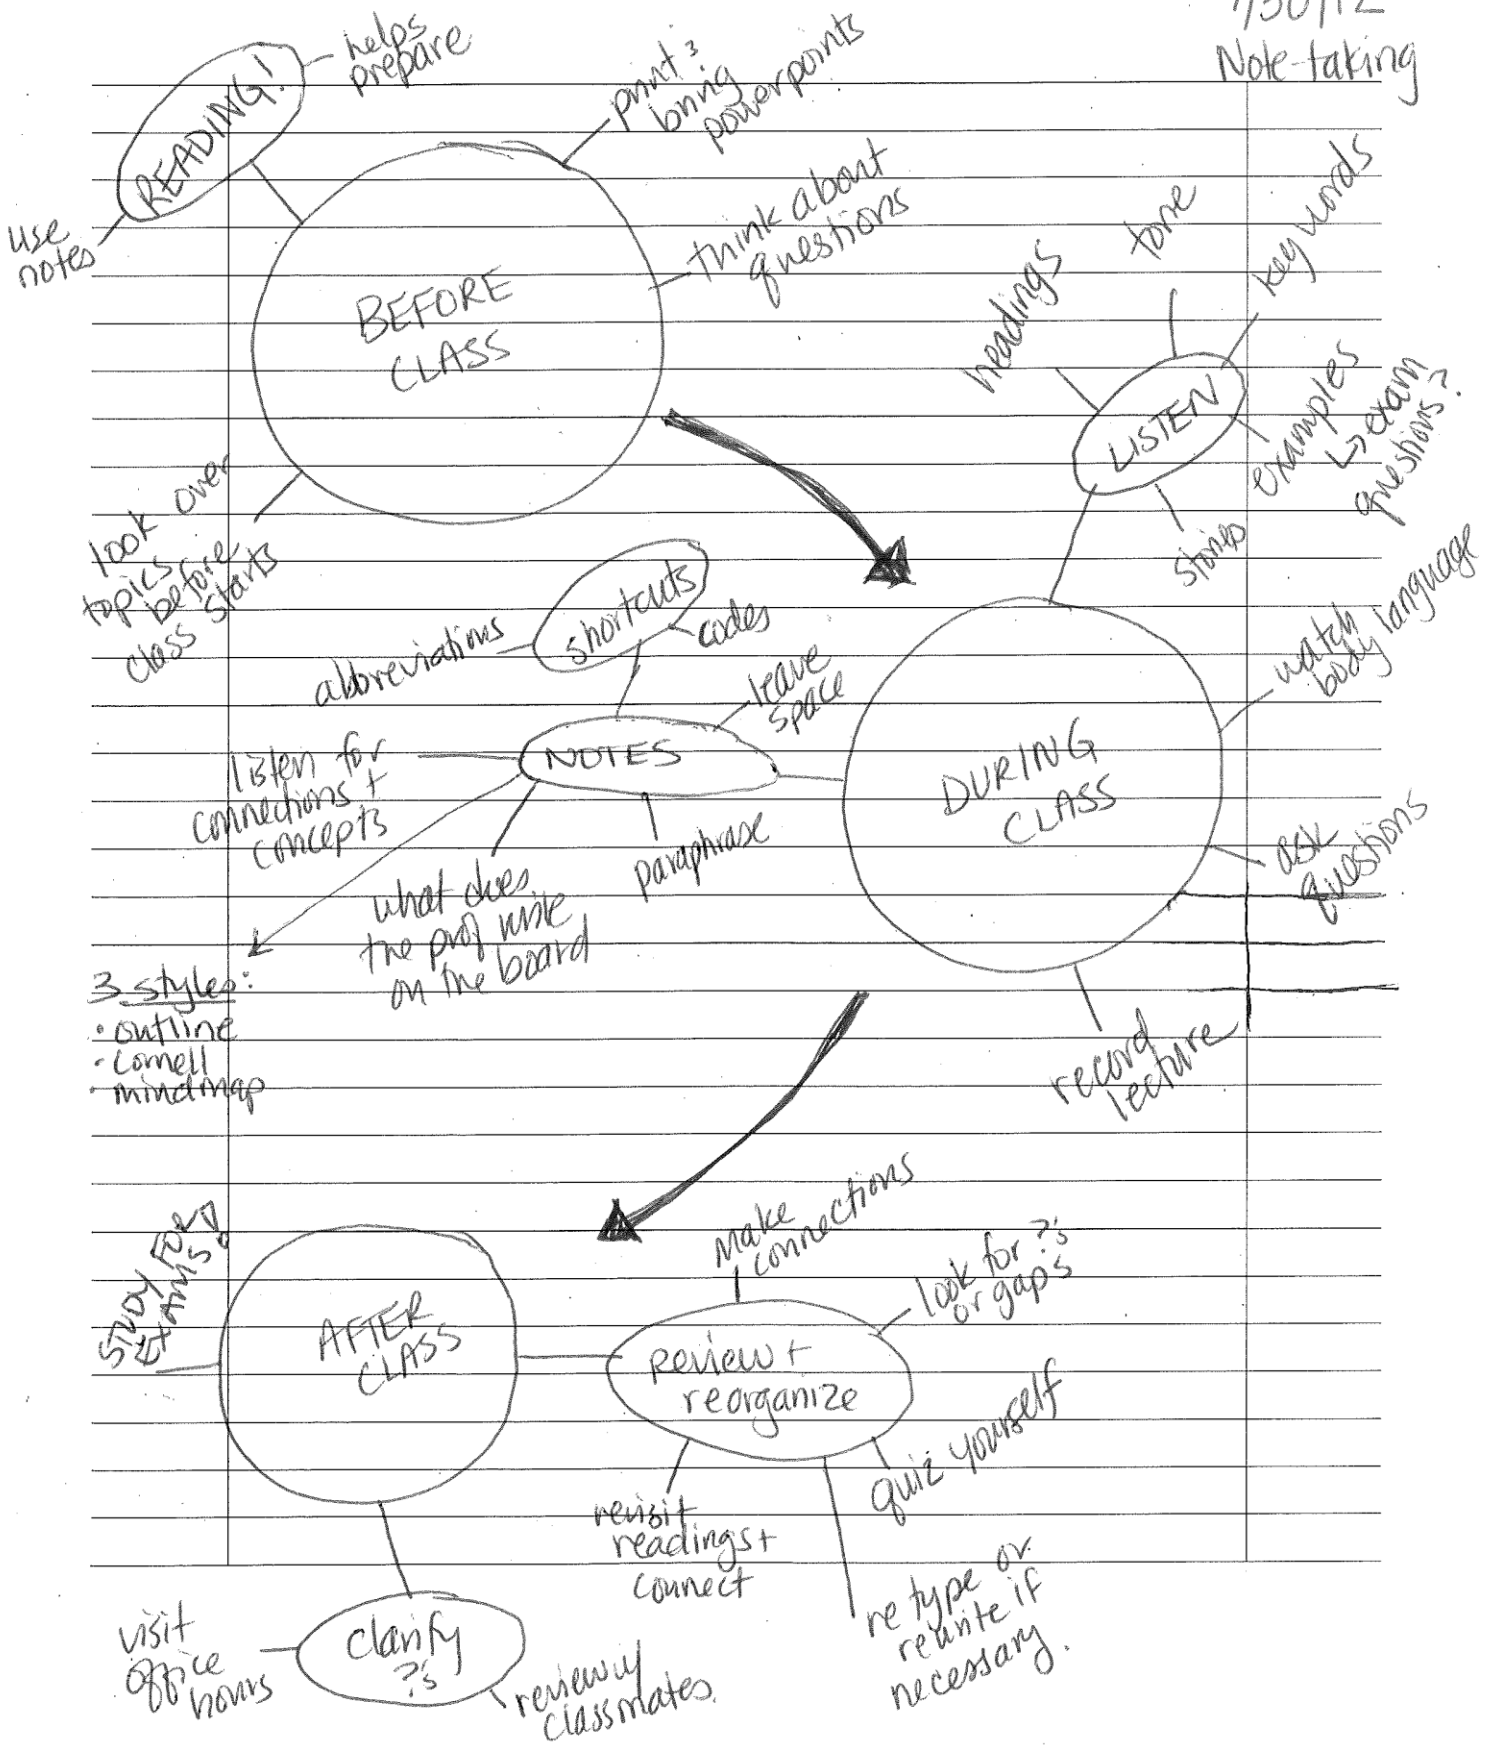 7/30/12
Note-taking
READING!
helps
prepare
use
notes
print &
bring
powerpoints
think about
questions
BEFORE
CLASS
look over
topics
before
class starts
LISTEN
headings
tone
key words
examples
↳ exam
questions?
stories
DURING
CLASS
watch
body language
ask
questions
record
lecture
NOTES
shortcuts
abbreviations
codes
leave
space
listen for
connections +
concepts
what does
the prof write
on the board
paraphrase
3 styles:
• outline
• cornell
• mindmap
AFTER
CLASS
STUDY FOR
EXAMS!
review +
reorganize
make
connections
look for ?'s
or gaps
quiz yourself
re type or
rewrite if
necessary.
revisit
readings +
connect
clarify
?'s
visit
office
hours
review w/
classmates.